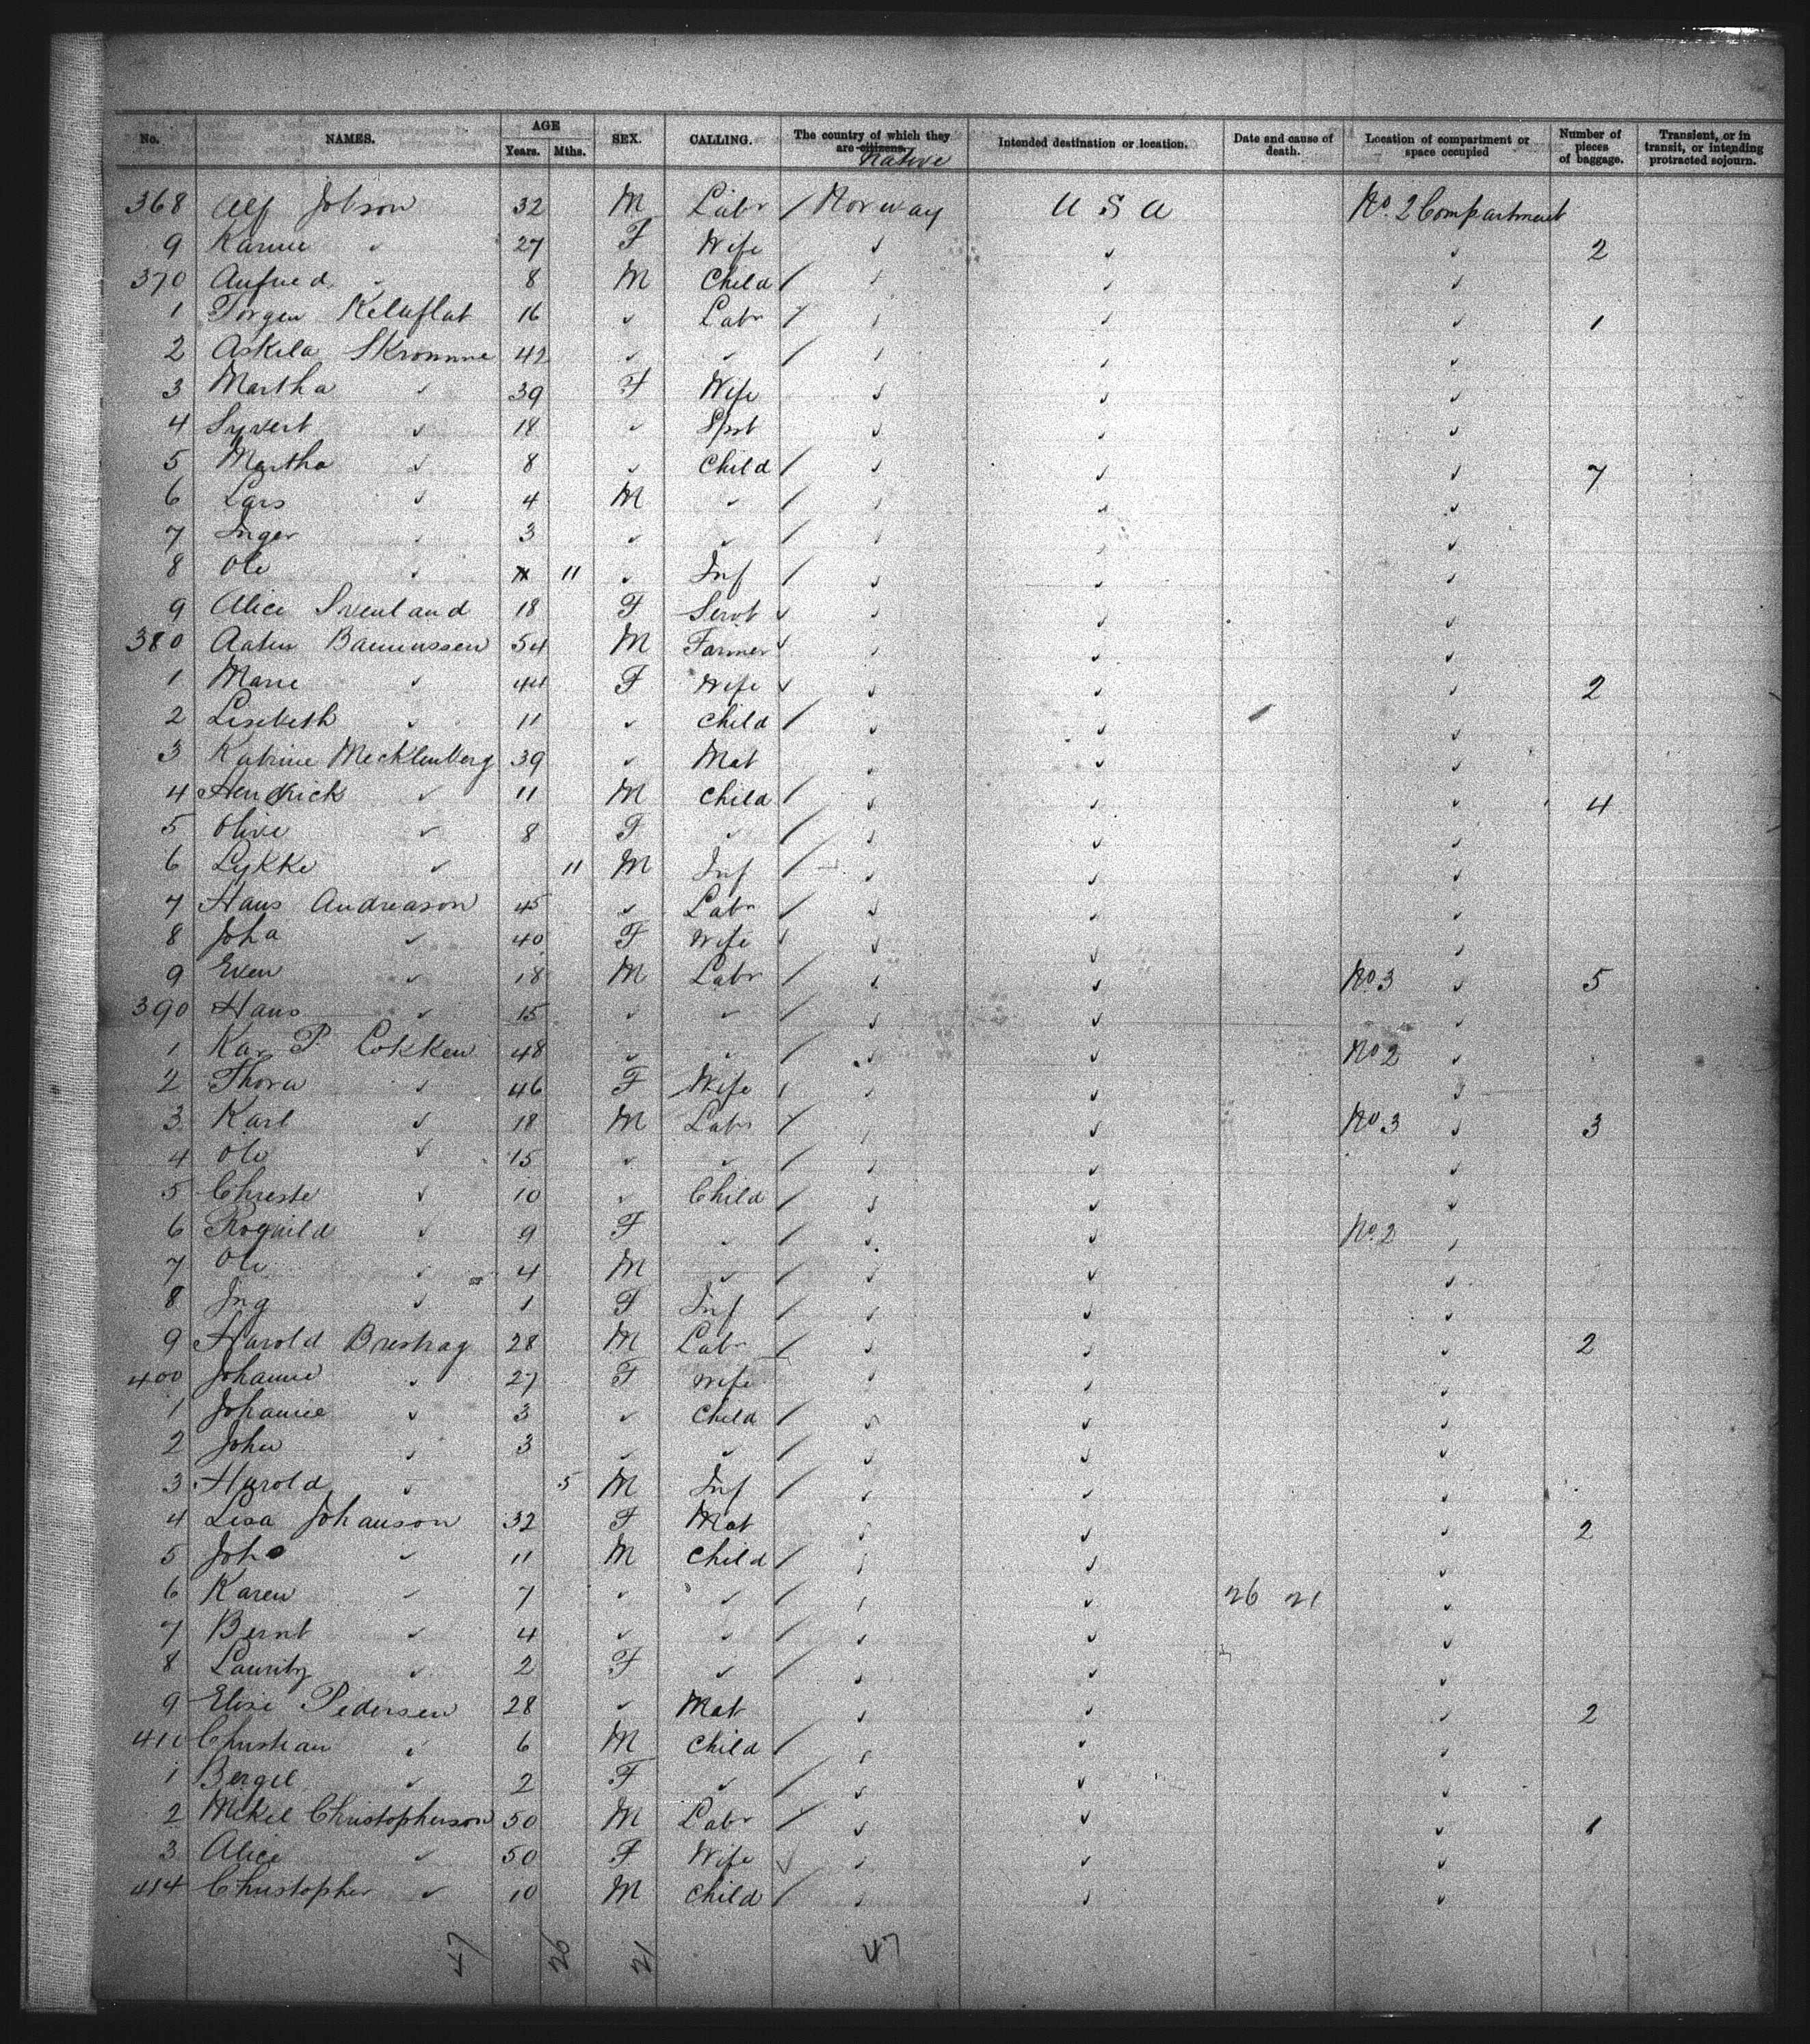 No. NAMES. AGE Years. Mths. SEX. CALLING. The country of which they are citizens. Native Intended destination or location. Date and cause of death. Location of compartment or space occupied Number of pieces of baggage. Transient, or in transit, or intending protracted sojourn.
368 Alf Jobson 32 M Labr / Norway U S A No. 2 Compartment
9 Karine ✓ 27 F Wife ✓ ✓ ✓ 2
370 Aufned ✓ 8 M Child / ✓ ✓ ✓
1 Torgen Keluflat 16 ✓ Labr / ✓ ✓ ✓ 1
2 Askila Skromme 42 ✓ ✓ / ✓ ✓ ✓
3 Martha ✓ 39 F Wife ✓ ✓ ✓
4 Syvert ✓ 18 ✓ Spst ✓ ✓ ✓
5 Martha ✓ 8 ✓ Child / ✓ ✓ ✓ 7
6 Lars ✓ 4 M ✓ / ✓ ✓ ✓
7 Inger ✓ 3 ✓ ✓ / ✓ ✓ ✓
8 Ole ✓ 11 ✓ Inf / ✓ ✓ ✓
9 Alice Svenland 18 F Servt ✓ ✓ ✓ ✓
380 Aaten Bamussen 54 M Farmer ✓ ✓ ✓ ✓
1 Marie ✓ 44 F Wife ✓ ✓ ✓ ✓ 2
2 Lisebeth ✓ 11 ✓ Child / ✓ ✓ ✓
3 Katrine Mecklenberg 39 ✓ Mat ✓ ✓ ✓
4 Hendrick ✓ 11 M Child / ✓ ✓ ✓ 4
5 Olive ✓ 8 F ✓ / ✓ ✓ ✓
6 Lykke ✓ 11 M Inf / ✓ ✓ ✓
7 Hans Andreason 45 ✓ Labr / ✓ ✓ ✓
8 Joha ✓ 40 F Wife ✓ ✓ ✓ ✓
9 Even ✓ 18 M Labr / ✓ ✓ No 3 ✓ 5
390 Hans ✓ 15 ✓ ✓ / ✓ ✓ ✓
1 Kar P. Cokken 48 ✓ ✓ / ✓ ✓ No 2 ✓
2 Thora ✓ 46 F Wife ✓ ✓ ✓ ✓
3 Karl ✓ 18 M Labr / ✓ ✓ No 3 ✓ 3
4 Ole ✓ 15 ✓ ✓ / ✓ ✓ ✓
5 Chreste ✓ 10 ✓ Child / ✓ ✓ ✓
6 Rognild ✓ 9 F ✓ / ✓ ✓ No. 2 ✓
7 Ole ✓ 4 M ✓ / ✓ ✓ ✓
8 Ing ✓ 1 F Inf / ✓ ✓ ✓
9 Harold Brestrag 28 M Labr / ✓ ✓ ✓ 2
400 Johanne ✓ 27 F Wife ✓ ✓ ✓
1 Johanne ✓ 3 ✓ Child / ✓ ✓ ✓
2 John ✓ 3 ✓ ✓ / ✓ ✓ ✓
3 Harold ✓ 5 M Inf / ✓ ✓ ✓
4 Lisa Johanson 32 F Mat ✓ ✓ ✓ 2
5 Joh ✓ 11 M Child / ✓ ✓ ✓
6 Karen ✓ 7 ✓ ✓ / ✓ ✓ 26 21 ✓
7 Bernt ✓ 4 ✓ ✓ / ✓ ✓ ✓
8 Lauritz ✓ 2 F ✓ / ✓ ✓ ✓
9 Elise Pedersen 28 ✓ Mat ✓ ✓ ✓ 2
410 Christian ✓ 6 M Child / ✓ ✓ ✓
1 Bergel ✓ 2 F ✓ / ✓ ✓ ✓
2 Mikel Christopherson 50 M Labr / ✓ ✓ ✓ 1
3 Alice ✓ 50 F Wife ✓ ✓ ✓ ✓
414 Christopher ✓ 10 M Child / ✓ ✓ ✓
47 26 21 47